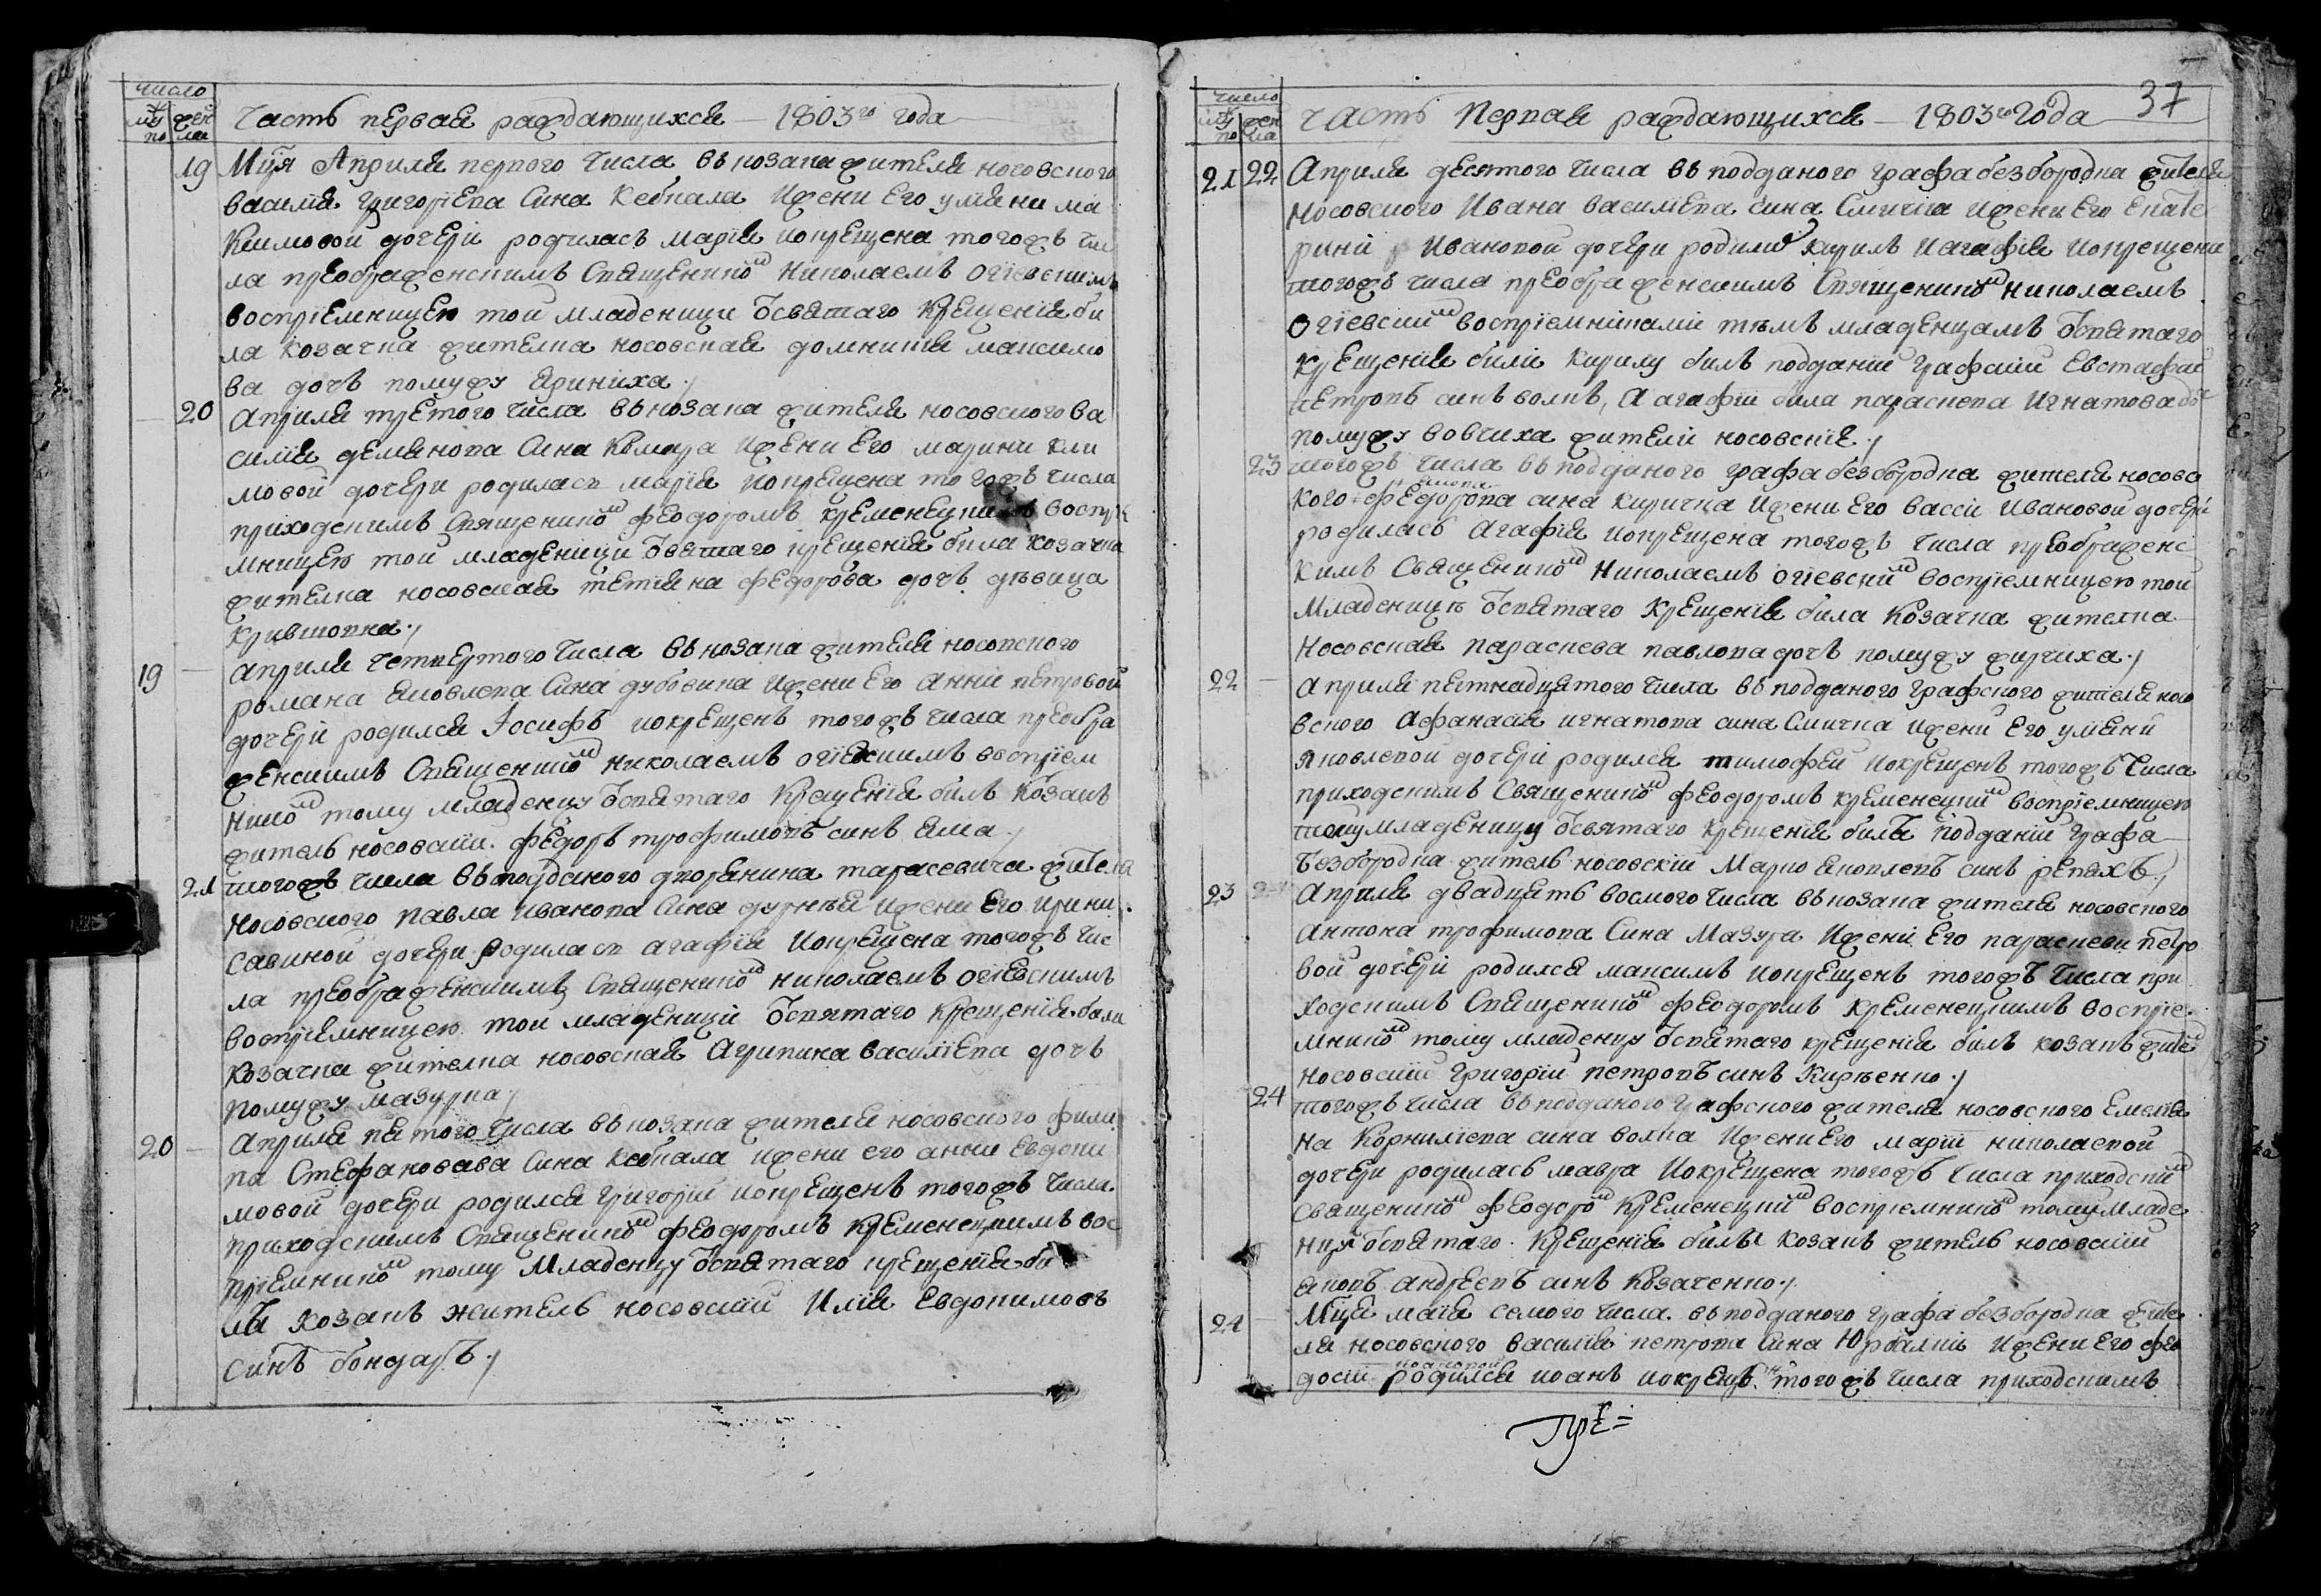 число
му по
жен ска
Часть первая раждающихся 1803го года
19 Мця Априля первого числа въ козака жителя носовского
василия григориева сина Кебкала и жени его улияни ма
Кимовой дочери родилась мария и окрещена тогожъ чис
ла преображенскимъ Священником Николаемъ огіевскимъ
восприемницею той младеници от святаго Крещения би
ла козачка жителка носовская домникия максимо
ва дочъ по мужу яриниха
20 Априля третого числа въ козака жителя носовского ва
силия демянова сина Комара и жени его марини кли
мовой дочери родилась мария и окрещена тогожъ числа
приходскимъ Священником феодоромъ кременецкимъ воспріе
мницею той младеници от святаго крещения била козачка
жителка носовская тетяна федорова дочъ дѣвица
кривошопка
19 Априля четвертого числа въ козака жителя носовского
романа яковлева сина дубовика и жени его анни петровой
дочери родился Іосифъ и окрещенъ тогожъ числа преобра
женскимъ Священником николаемъ огіевскимъ восприем
ником тому младенцу от святаго Крещения билъ козакъ
житель носовский федоръ трофимовъ синъ яма
21 тогожъ числа въ подданого дворянина тарасевича жителя
Носовского павла иванова сина дурнѣя и жени его ирини
савиной дочери родилась агафія и окрещена тогожъ чис
ла преображенскимъ Священником николаемъ огіевскимъ
восприемницею той младеници от святаго крещения била
козачка жителка носовская Агрипина василиева дочъ
по мужу мазурка
20 Априля пятого числа въ козака жителя носовского фили
па Стефановава сина Кебкала и жени его анни Евдоки
мовой дочери родился григорий и окрещенъ тогожъ числа
приходскимъ Священником феодоромъ кременецкимъ вос
приемником тому Младенцу от святаго крещения би
лъ козакъ житель носовский Илия Евдокимовъ
синъ бондаръ
37
число
му по
жен ска
Часть Первая раждающихся 1803го Года
21 22 Априля десятого числа въ подданого графа безбородка жителя
Носовского Ивана василиева сина Смичка и жени его екате
рини Ивановой дочери родились кирилъ и агафия и окрещени
тогожъ числа преображенскимъ Священником николаемъ
Огіевским восприемниками тѣмъ младенцамъ от святаго
крещения били кирилу билъ подданий графский Евстафий
петровъ синъ волкъ, А агафии била параскева Игнатова доч
по мужу вовчиха жители носовские
23 тогожъ числа въ подданого графа безбородка жителя носовс
кого якова федорова сина киричка и жени его васси Ивановой дочери
родилась Агафия и окрещена тогожъ числа преображенс
кимъ Священником Николаемъ огіевским восприемницею той
Младеницѣ от святаго Крещения била Козачка жителка
Носовская параскева павлова дочъ по мужу жирчиха
22 Априля пятнадцятого числа въ подданого графского жителя носо
вского Афанасия игнатова сина Смичка и жени его уляни
яковлевой дочери родился тимофей и окрещенъ тогожъ числа
приходскимъ Священником феодоромъ кременецким восприемницею
тому младеницу от святаго крещения билъ подданий графа
безбородка житель носовский Марко яковлевъ синъ репяхъ
23 Априля двадцять восмого числа въ козака жителя носовского
Антона трофимова сина Мазура и жени его параскеви петро
вой дочери родился максимъ и окрещенъ тогожъ числа при
ходскимъ Священником феодоромъ кременецкимъ восприе
мником тому младенцу от святаго крещения билъ козакъ жител
носовский григорий петровъ синъ Кирѣенко
24 тогожъ числа въ подданого графского жителя носовского Емелия
на Корнилиева сина волка и жени его марии николаевой
дочери родилась мавра и окрещена тогожъ числа приходским
священником феодором кременецким восприемником тому младе
нцу от святаго Крещения билъ козакъ житель носовский
яковъ андреевъ синъ козаченко
24 Мця мая семого числа въ подданого графа безбородка жите
ля носовского василия петрова сина Юрбалки и жени его фео
досии иоановой родился иоанъ и окрещенъ тогожъ числа приходскимъ
Пре=